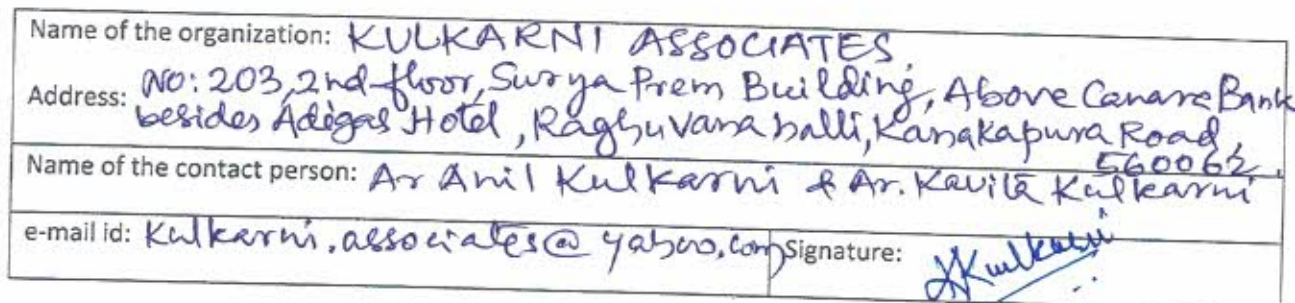 Name of the organization: KULKARNI ASSOCIATES,
Address: NO: 203, 2nd floor, Surya Prem Building, Above Canara Bank
besides Adigas Hotel, Raghuvanahalli, Kanakapura Road,
560062.
Name of the contact person: Ar Anil Kulkarni & Ar. Kavita Kulkarni
e-mail id: Kulkarni.associates@yahoo.com Signature: Kulkarni